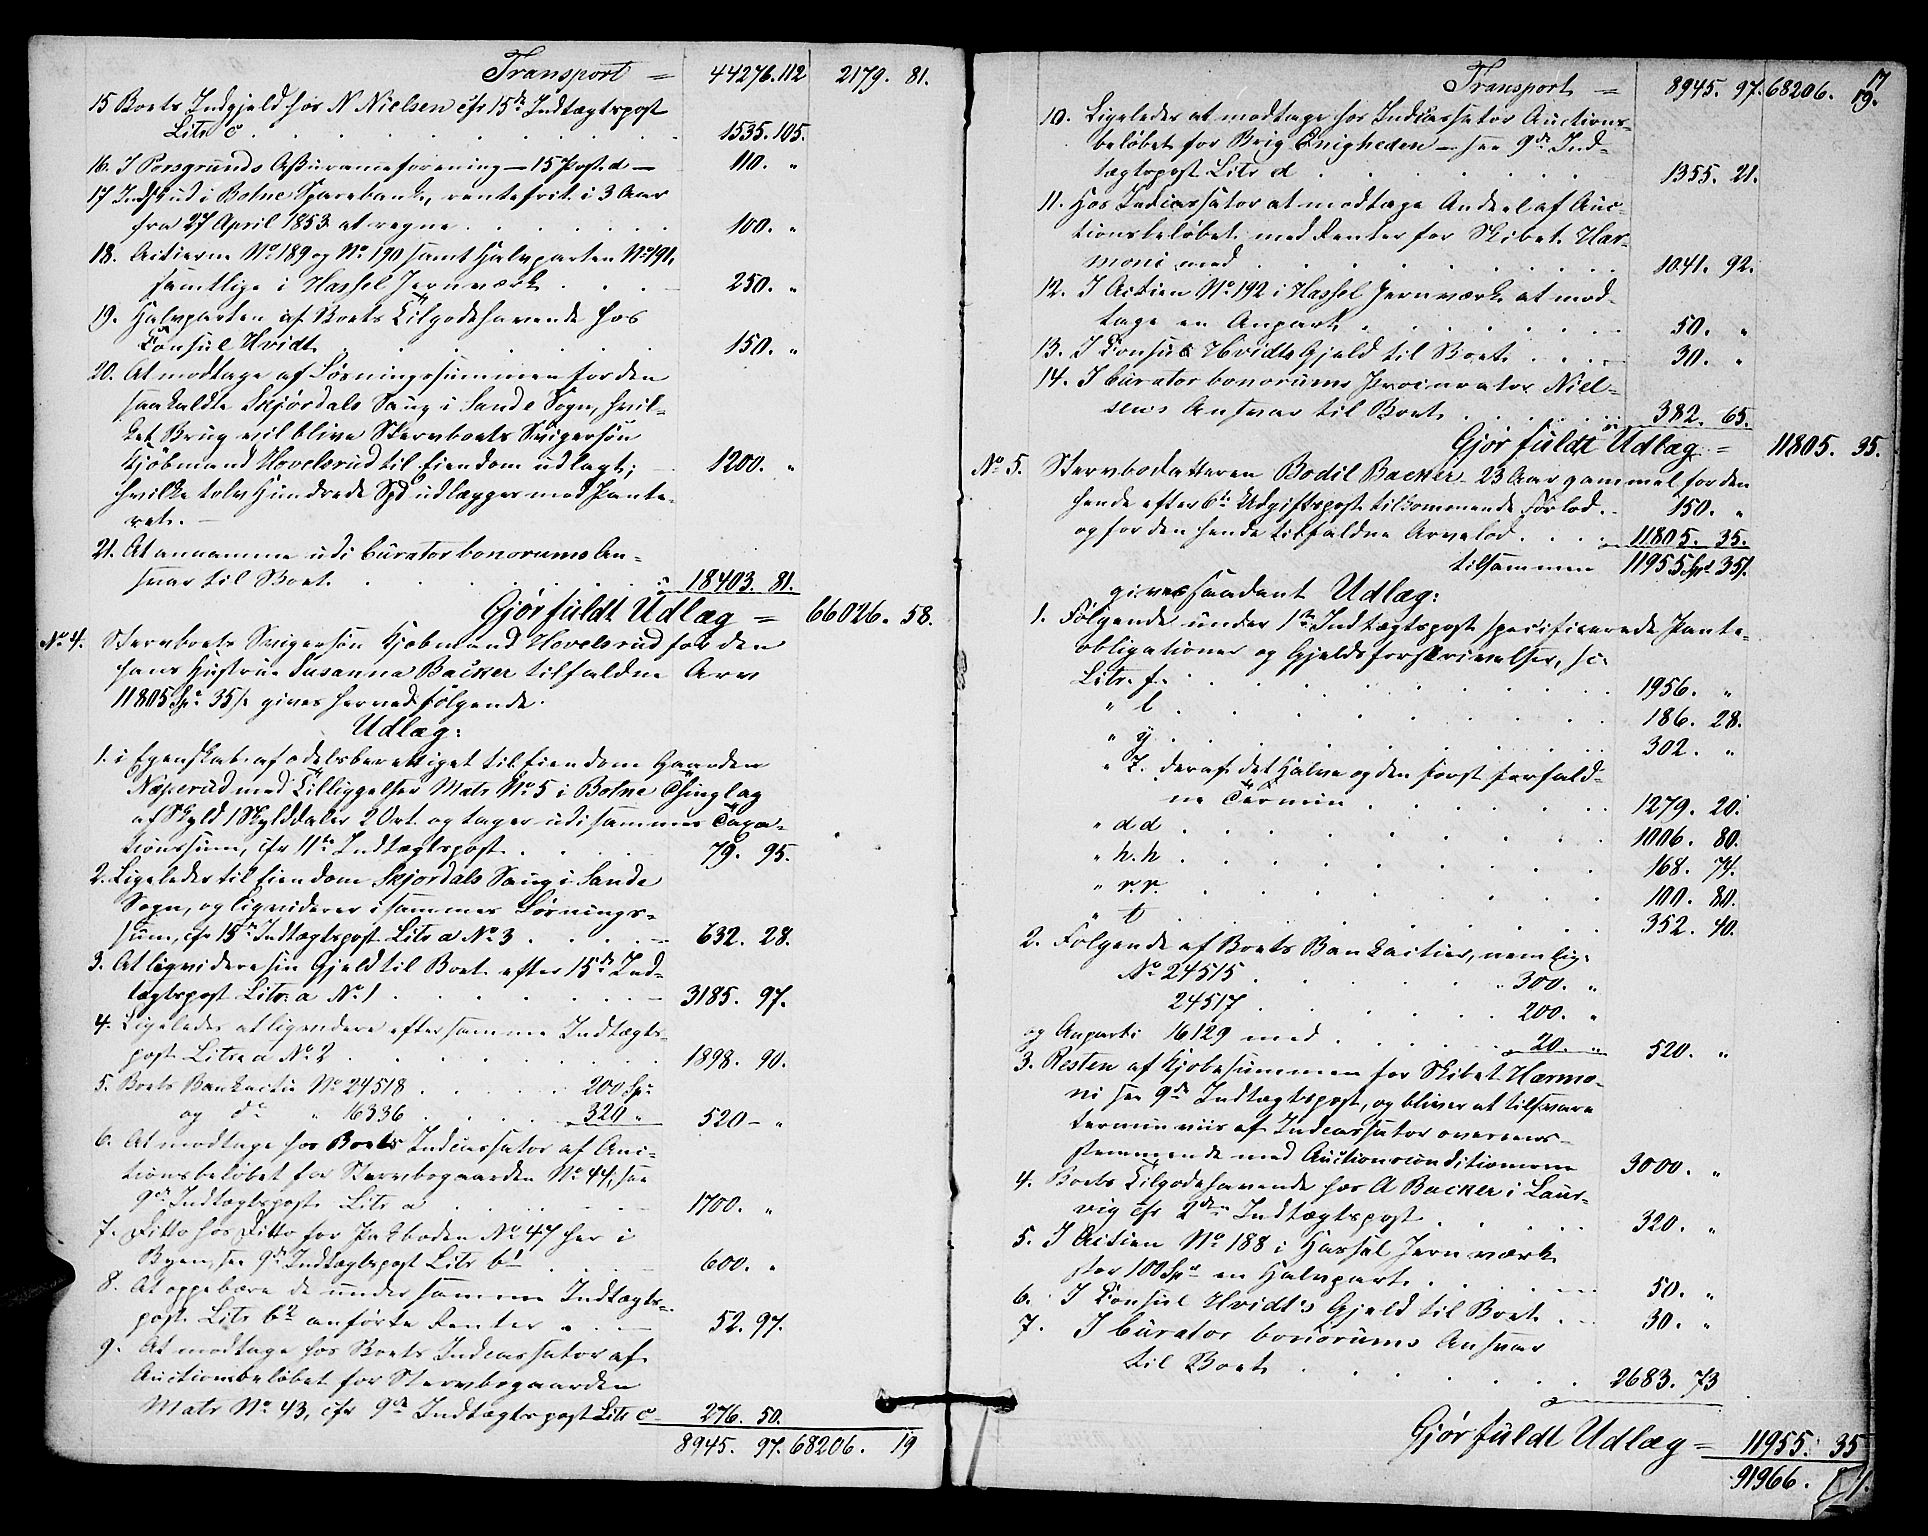 Transport = 44276.112 2179. 81.
15 Boets Indgjeld hos N Nielsen cfr 15de Indtægtspost
Litr c . . . 1535. 105.
16. I Porsgrunds Assuranceforening — 15 Post d — 110. "
17 Indskud i Botne Sparebank, rentefrit i 3 Aar
fra 27 April 1853 at regne . . . 100. "
18. Actierne No 189 og No 190 samt Halvparten No 191,
samtlige i Hassel Jernværk . . . 250. "
19. Halvparten af Boets Tilgodehavende hos
Consul Hvidt . . . 150. "
20. At modtage af Løsningssummen for den
saakaldte Skjørdals Saug i Sande Sogn, hvil-
ket Brug vil blive Stervboets Svigersøn
Kjøbmand Hovelsrud til Eiendom udlagt;
hvilke tolv Hundrede Spd udlægges mod Pante-
ret. — 1200. "
21. At annamme udi Curator bonorums An-
svar til Boet . . . 18403. 81.
Gjør fuldt Udlæg = 66026. 58.
No 4. Stervboets Svigersøn Kjøbmand Hovelsrud for den
hans Hustrue Susanna Backer tilfaldne Arv
11805 Spd 35 s gives herved følgende
Udlæg:
1. i Egenskab af odelsberettiget til Eiendom Gaarden
Næperud med Tilliggelser Matr No 5 i Botne Thinglag
af Skyld 1 Skylddaler 2 Ort og tages udi sammes Taxa-
tionssum, cfr 11te Indtægtspost . . . 79. 95.
2. Ligeledes til Eiendom Skjordals Saug i Sande
Sogn, og liqviderer i sammes Løsnings-
sum, cfr 15de Indtægtspost Litr a No 3 . . . 632. 28.
3. At liqvidere sin Gjeld til Boet efter 15de Ind-
tægtspost Litr. a No 1 . . . 3185. 97.
4. Ligeledes at liqvidere efter samme Indtægts-
post Litra a No 2 . . . 1898. 90.
5. Boets Bankactie No 24518 . . . 200 Spd
og do " 16336 . . . 320 " 520 — "
6. At modtage hos Boets Indcassator af Auc-
tionsbeløbet for Stervbogaarden No 44, see
9de Indtægtspost Litr a . . . 1700. "
7. Ditto hos Ditto for Pakboden No 47 her i
Byen, see 9de Indtægtspost Litr b1 . . . 600. "
8. At oppebære de under samme Indtægts-
post Litr b2 anførte Renter . . . 52. 97.
9. At modtage hos Boets Indcassator af
Auctionsbeløbet for Stervbogaarden
Matr No 43, cfr 9de Indtægtspost Litr c 276. 50.
8945. 97. 68206. 19
17
Transport = 8945. 97. 68206. 19.
10. Ligeledes at modtage hos Indcassator Auctions-
beløbet for Brig Enigheden — see 9de Ind-
tægtspost Litr d . . . 1355. 21.
11. Hos Indcassator at modtage Andeel af Auc-
tionsbeløbet med Renter for Skibet Har-
moni med . . . 1041. 92.
12. I Actien No 192 i Hassel Jernværk at mod-
tage en Anpart . . . 50. "
13. I Consul Hvidts Gjeld til Boet . . . 30. "
14. I Curator bonorums Procurator Niel-
sens Ansvar til Boet . . . 382. 65.
Gjør fuldt Udlæg = 11805. 35.
No 5. Stervbodatteren Bodil Backer 23 Aar gammel for den
hende efter 6te Udgiftspost tilkommende Forlod . . 150. "
og for den hende tilfaldne Arvelod . . . 11805. 35.
tilsammen 11955 Spd 35 s.
gives saadant Udlæg:
1. Følgende under 1ste Indtægtspost specificerede Pante-
obligationer og Gjeldsforskrivelser, sc:
Litr. f. . . . 1956. "
" l . . . 186. 28.
" y . . . 302. "
" z. deraf det Halve og den først forfald-
ne Termin . . . 1279. 20.
" d d . . . 1006. 80.
" h. h . . . 168. 74.
" r. r. . . . 100. 80.
" t . . . 352. 40.
2. Følgende af Boets Bankactier, nemlig:
No 24515 . . . 300. "
24517 . . . 200. "
og Anparti 16129 med . . . 20. " 520. "
3. Resten af Kjøbesummen for Skibet Harmo-
ni see 9de Indtægtspost, og bliver at tilsvare
terminviis af Indcassator overeens-
stemmende med Auctionsconditionerne 3000. "
4. Boets Tilgodehavende hos A Backer i Laur-
vig cfr 2den Indtægtspost . . . 320. "
5. I Actien No 188 i Hassel Jernværk
stor 100 Spd en Halvpart . . . 50. "
6. I Consul Hvidt's Gjeld til Boet . . . 30. "
7. I Curator bonorums Ansvar
til Boet . . . 2683. 73
Gjør fuldt Udlæg = 11955. 35
91966.